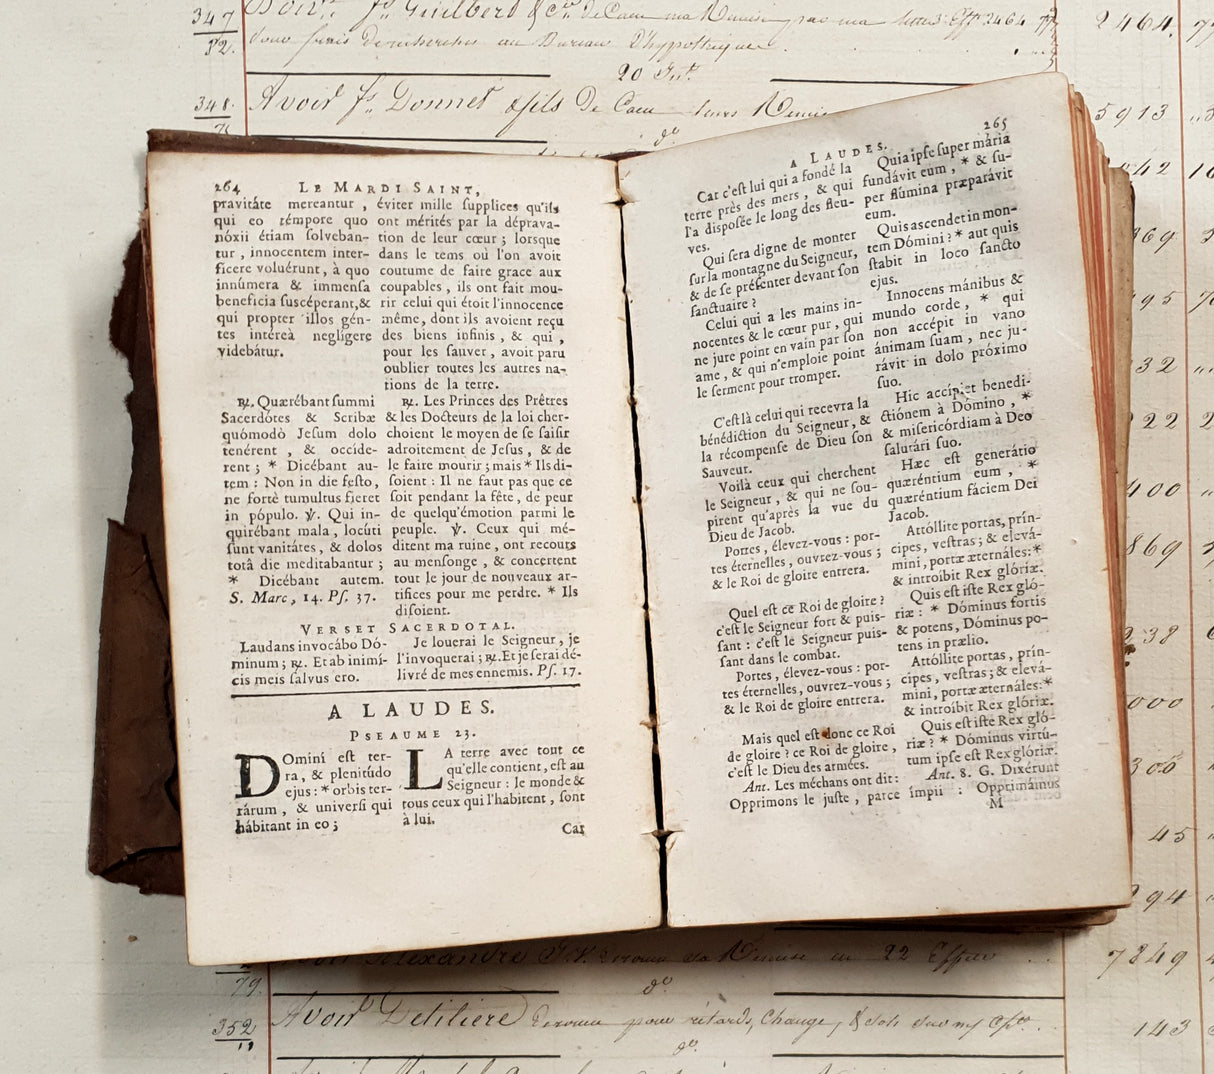 347
52.
348.
20
2464.
5913
264
LE MARDI SAINT,
pravitáte mereantur,
qui eo témpore quo
nóxii étiam ſolveban-
tur, innocentem inter-
ficere voluérunt, à quo
innúmera & immenſa
beneficia ſuscéperant, &
qui propter illos gén-
tes intéreà neglígere
videbátur.
éviter mille ſupplices qu'ils
ont mérités par la déprava-
tion de leur cœur; lorsque
dans le tems où l'on avoit
coutume de faire grace aux
coupables, ils ont fait mou-
rir celui qui étoit l'innocence
même, dont ils avoient reçu
des biens infinis, & qui,
pour les ſauver, avoit paru
oublier toutes les autres na-
tions de la terre.
℟. Quærébant ſummi
Sacerdótes & Scribæ
quómodò Jeſum dolo
tenérent, & occíde-
rent; * Dicébant au-
tem: Non in die feſto,
ne fortè tumultus fieret
in pópulo. ℣. Qui in-
quirébant mala, locúti
ſunt vanitátes, & dolos
totâ die meditabantur;
* Dicébant autem.
S. Marc, 14. Pſ. 37.
℟. Les Princes des Prêtres
& les Docteurs de la loi cher-
choient le moyen de ſe ſaiſir
adroitement de Jeſus, & de
le faire mourir; mais * Ils di-
ſoient: Il ne faut pas que ce
ſoit pendant la fête, de peur
de quelqu'émotion parmi le
peuple. ℣. Ceux qui mé-
ditent ma ruine, ont recours
au menſonge, & concertent
tout le jour de nouveaux ar-
tifices pour me perdre. * Ils
diſoient.
VERSET SACERDOTAL.
Laudans invocábo Dó-
minum; ℟. Et ab inimí-
cis meis ſalvus ero.
Je louerai le Seigneur, je
l'invoquerai; ℟. Et je ſerai dé-
livré de mes ennemis. Pſ. 17.
A LAUDES.
PSEAUME 23.
DOmini est ter-
ra, & plenitúdo
ejus: * orbis ter-
rárum, & univerſi qui
hábitant in eo;
LA terre avec tout ce
qu'elle contient, est au
Seigneur: le monde &
tous ceux qui l'habitent, ſont
à lui.
Car
A LAUDES.
265
Car c'est lui qui a fondé la
terre près des mers, & qui
l'a diſpoſée le long des fleu-
ves.
Qui ſera digne de monter
ſur la montagne du Seigneur,
& de ſe préſenter devant ſon
ſanctuaire?
Celui qui a les mains in-
nocentes & le cœur pur, qui
ne jure point en vain par ſon
ame, & qui n'emploie point
le ſerment pour tromper.
C'est là celui qui recevra la
bénédiction du Seigneur, &
la récompenſe de Dieu ſon
Sauveur.
Voilà ceux qui cherchent
le Seigneur, & qui ne ſou-
pirent qu'après la vue du
Dieu de Jacob.
Portes, élevez-vous: por-
tes éternelles, ouvrez-vous;
& le Roi de gloire entrera.
Quel est ce Roi de gloire?
c'est le Seigneur fort & puis-
ſant: c'est le Seigneur puis-
ſant dans le combat.
Portes, élevez-vous: por-
tes éternelles, ouvrez-vous;
& le Roi de gloire entrera.
Mais quel est donc ce Roi
de gloire? ce Roi de gloire,
c'est le Dieu des armées.
Ant. Les méchans ont dit:
Opprimons le juſte, parce
Quia ipſe ſuper mária
fundávit eum, * & ſu-
per flúmina præparávit
eum.
Quis ascendet in mon-
tem Dómini? * aut quis
ſtabit in loco ſancto
ejus.
Innocens mánibus &
mundo corde, * qui
non accépit in vano
ánimam ſuam, nec ju-
rávit in dolo próximo
ſuo.
Hic accípiet benedi-
ctiónem à Dómino, *
& misericórdiam à Deo
ſalutári ſuo.
Hæc est generátio
quæréntium eum, *
quæréntium fáciem Dei
Jacob.
Attóllite portas, prín-
cipes, veſtras; & elevá-
mini, portæ æternáles: *
& introíbit Rex glóriæ.
Quis est iſte Rex gló-
riæ: * Dóminus fortis
& potens, Dóminus po-
tens in prælio.
Attóllite portas, prín-
cipes, veſtras; & elevá-
mini, portæ æternáles: *
& introíbit Rex glóriæ.
Quis est iſte Rex gló-
riæ? * Dóminus virtú-
tum ipſe est Rex glóriæ.
Ant. 8. G. Dixérunt
ímpii: Opprimámus
M
79.
7849
352
143